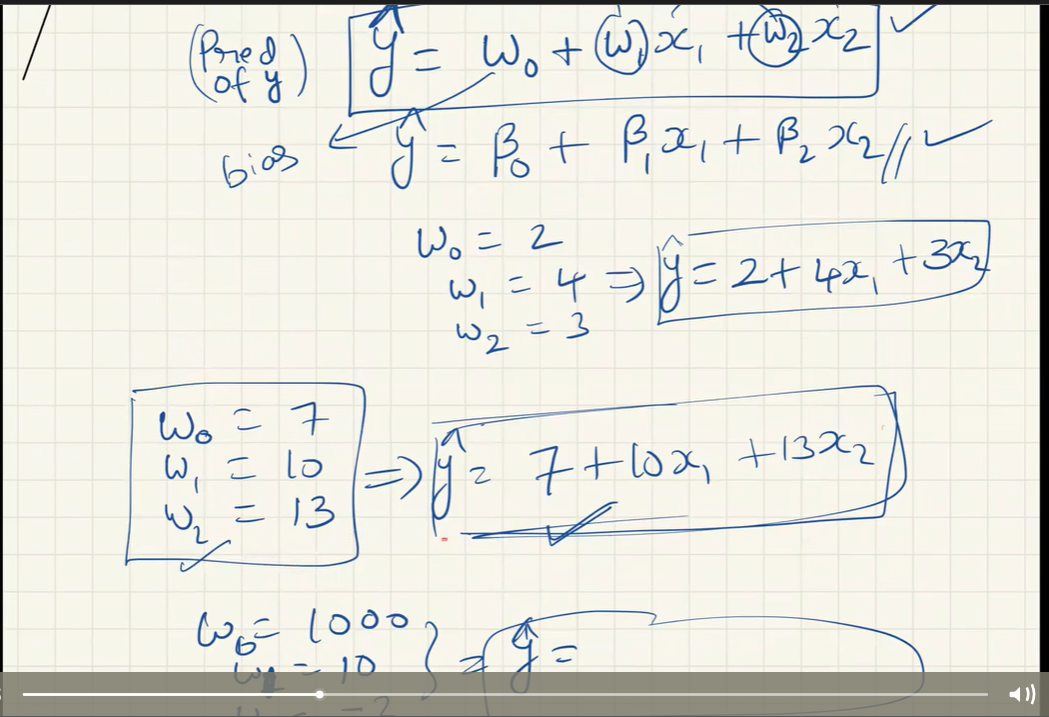 (Pred of y) ŷ = w₀ + w₁x₁ + w₂x₂
bias ŷ = β₀ + β₁x₁ + β₂x₂ //
w₀ = 2
w₁ = 4 ⇒ ŷ = 2 + 4x₁ + 3x₂
w₂ = 3
w₀ = 7
w₁ = 10 ⇒ ŷ = 7 + 10x₁ + 13x₂
w₂ = 13
w₀ = 1000
= 10 } ⇒ ŷ =